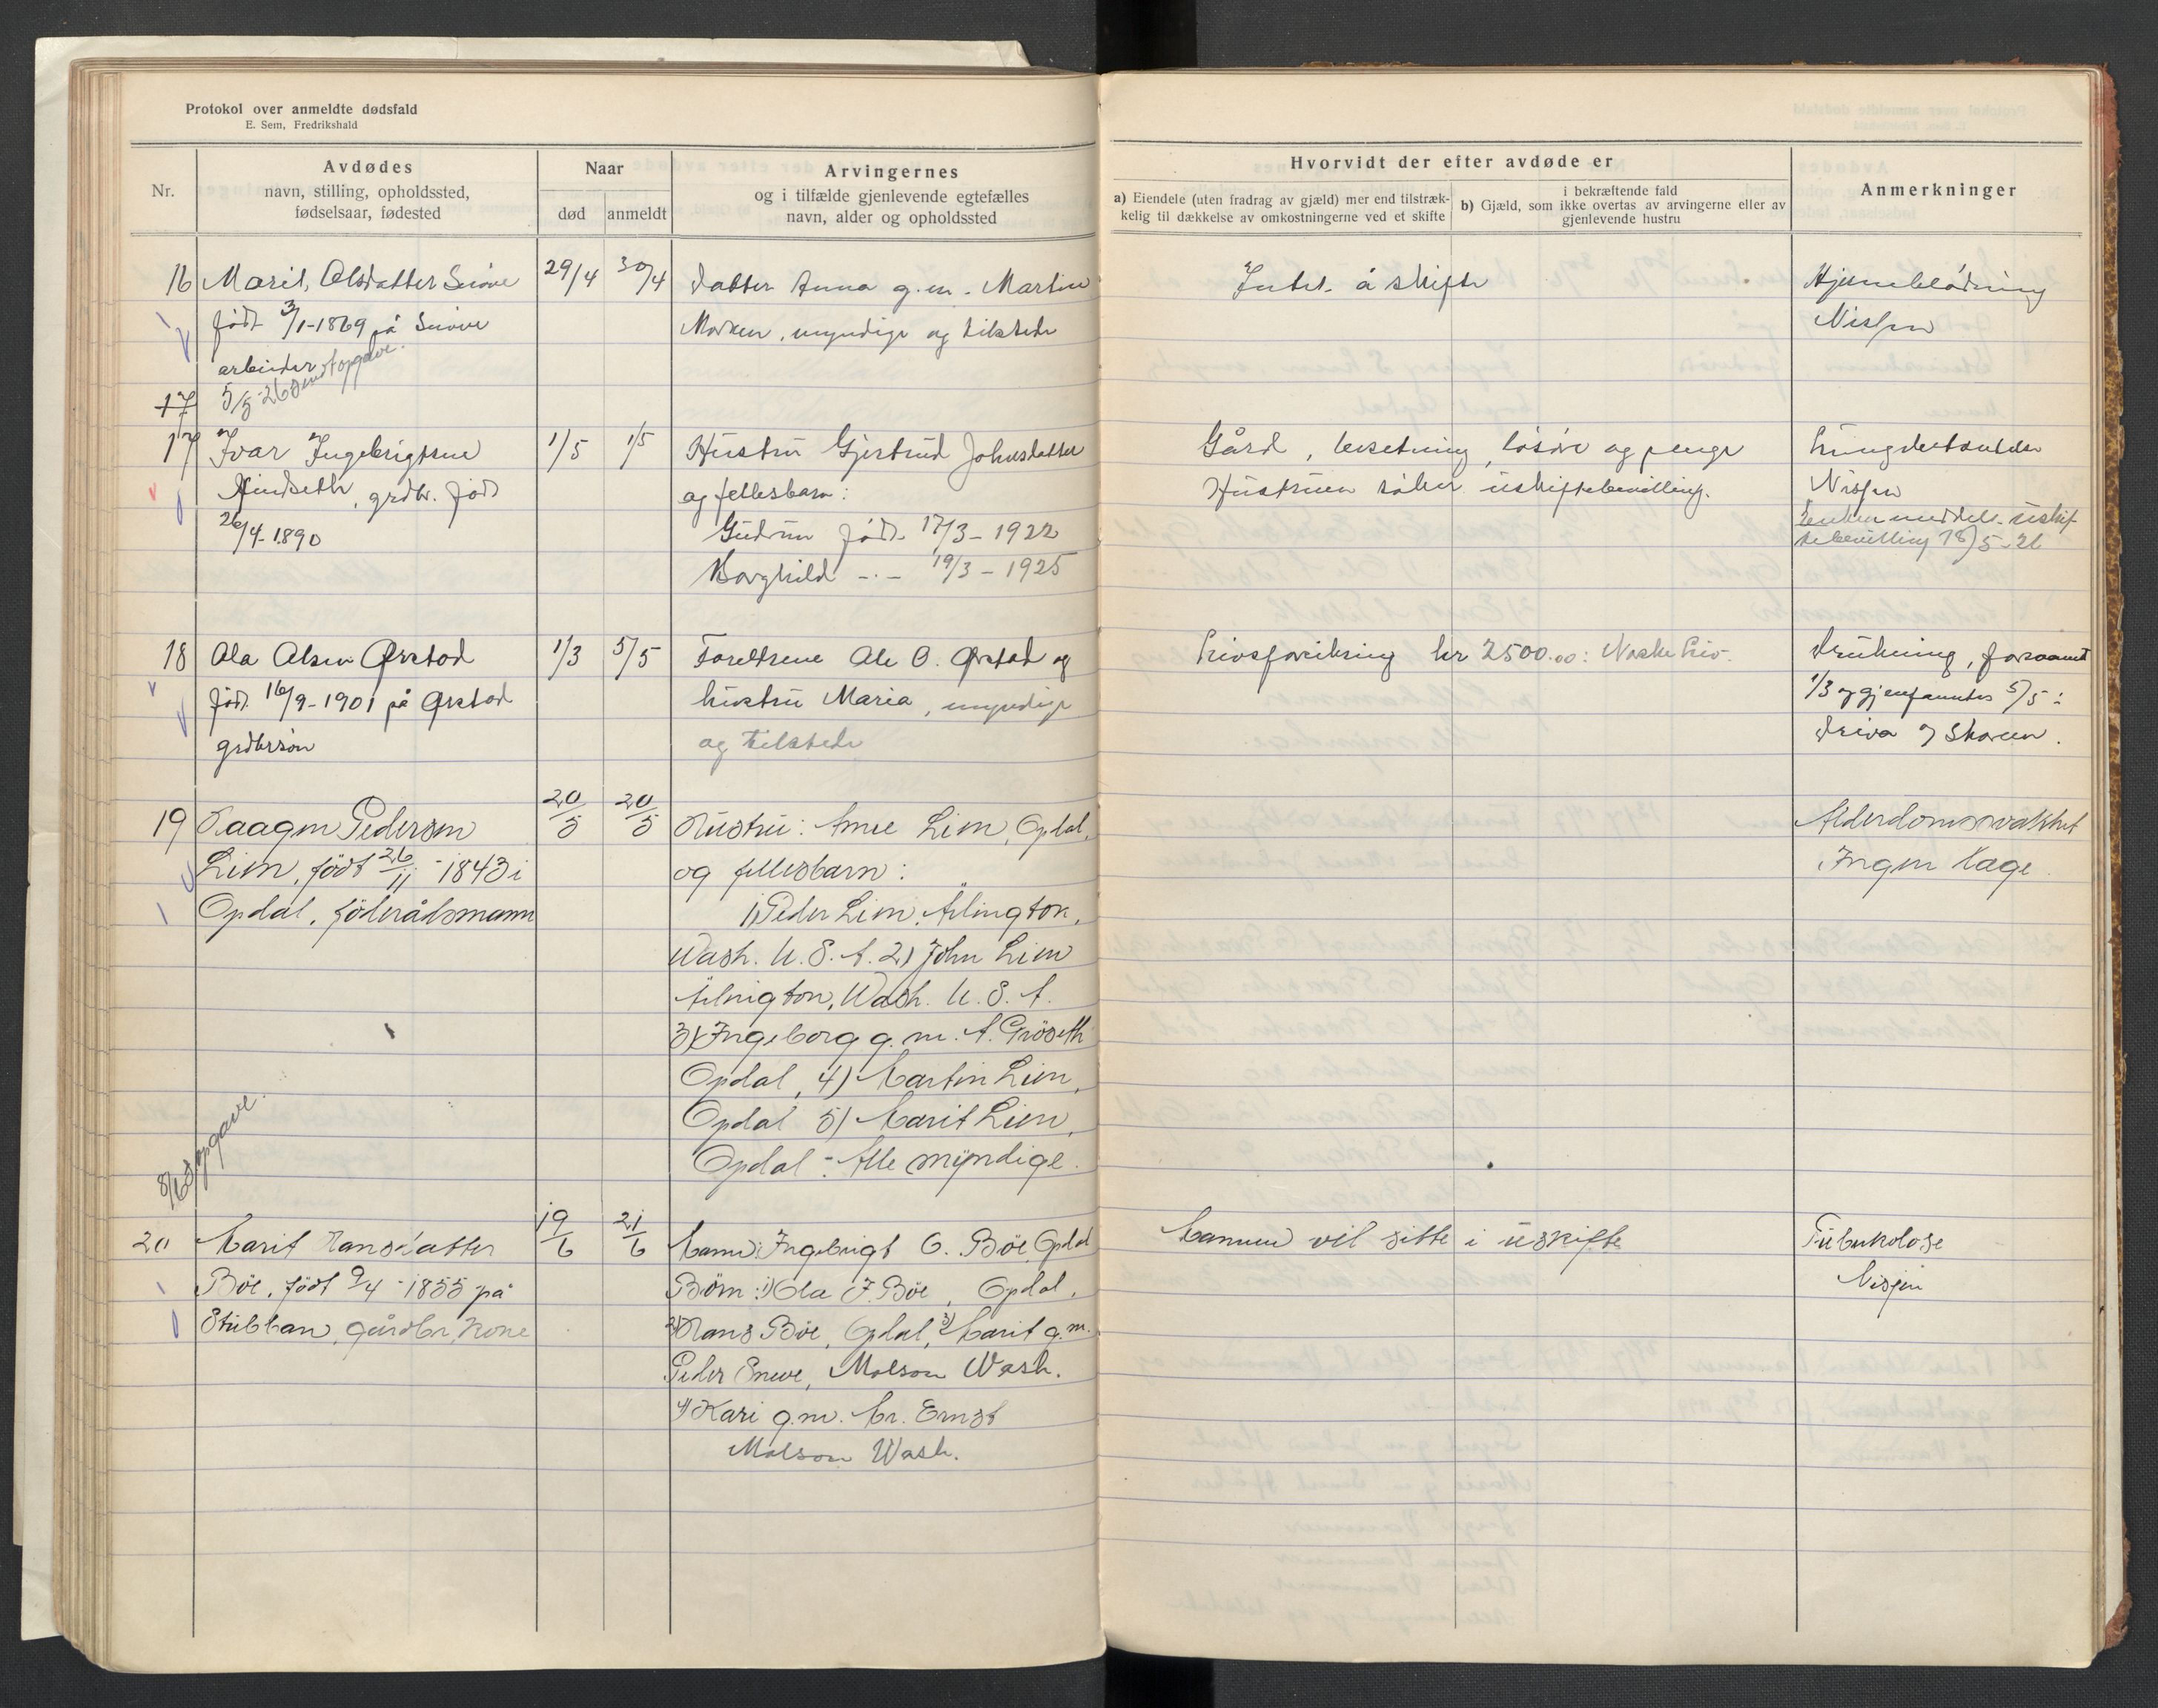 Protokol over anmeldte dødsfald
E. Sem, Fredrikshald
Nr.
Avdødes
navn, stilling, opholdssted,
fødselsaar, fødested
Naar
død
anmeldt
Arvingernes
og i tilfælde gjenlevende egtefælles
navn, alder og opholdssted
Hvorvidt der efter avdøde er
a) Eiendele (uten fradrag av gjæld) mer end tilstræk-
kelig til dækkelse av omkostningerne ved et skifte
i bekræftende fald
b) Gjæld, som ikke overtas av arvingerne eller av
gjenlevende hustru
Anmerkninger
16 Marit Olsdatter Snöve 29/4 30/4 Datter Anna g.m. Martin Intet å skifte Hjerneblödning
född 3/1-1869 på Snöve , myndige og tilstede Nisjen
arbeider
5/5-26 sendt opgave.
17
17 Ivar Ingebrigtsen 1/5 1/5 Hustru Gjertrud Johnsdatter Gård, besetning, lösöre og penge
, grdbr. född og fellesbarn: Hustruen söker uskiftebevilling. Nisjen
26/4-1890 Gudrun född 17/3-1922 Enken meddelt uskif-
tebevilling 18/5-26
Borghild -"- 19/3-1925
18 Ola Olsen Ørstad 1/3 5/5 Foreldrene Ole O. Ørstad og Livsforsikring kr 2500.00: Norske Liv. Drukning, forsvant
född 16/9-1901 på Ørstad hustru Maria, myndige 1/3 og gjenfunnet 5/5 i
grdbrsön og tilstede Driva v/ Skoren.
19 Haagen Pedersen 20/5 20/5 Hustru: Anne Lien, Opdal, Alderdomssvakhet
Lien, född 26/11-1843 i og fellesbarn: Ingen läge
Opdal, föderådsmann 1) Peder Lien, Arlington,
Wash. U.S.A. 2) John Lien
Arlington, Wash. U.S.A.
3) Ingeborg g.m. A. Gröseth
Opdal, 4) Martin Lien,
Opdal 5) Marit Lien,
Opdal - Alle myndige.
8/6 opgave.
20 Marit Hansdatter 19/6 21/6 Mann: Ingebrigt O. Böe, Opdal Mannen vil sitte i uskifte Tuberkolose
Böe, född 9/4-1855 på Börn: 1) Ola I. Böe, Opdal, Nisjen
Stubban, gårdbr. kone 2) Hans Böe, Opdal, 3) Marit g.m.
Peder Sneve, Molson Wash.
4) Kari g.m. Mr. Ernst
Molson Wash.